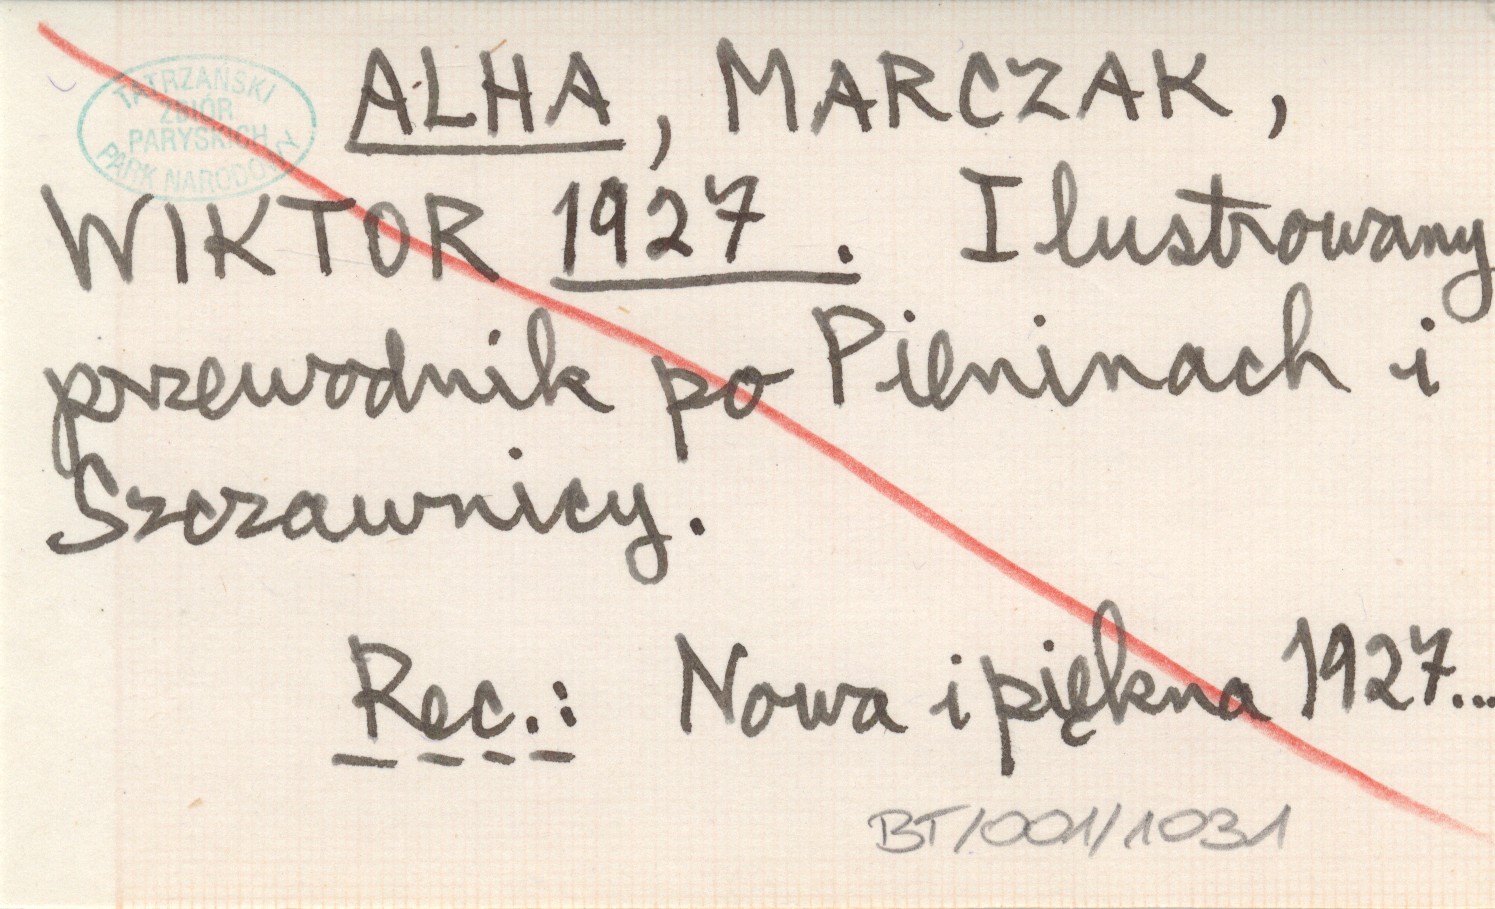 TATRZAŃSKI
ZBIÓR
PARYSKICH
PARK NARODOWY
ALHA, MARCZAK,
WIKTOR 1927. Ilustrowany
przewodnik po Pieninach i
Szczawnicy.
Rec.: Nowa i piękna 1927...
BT/001/1031